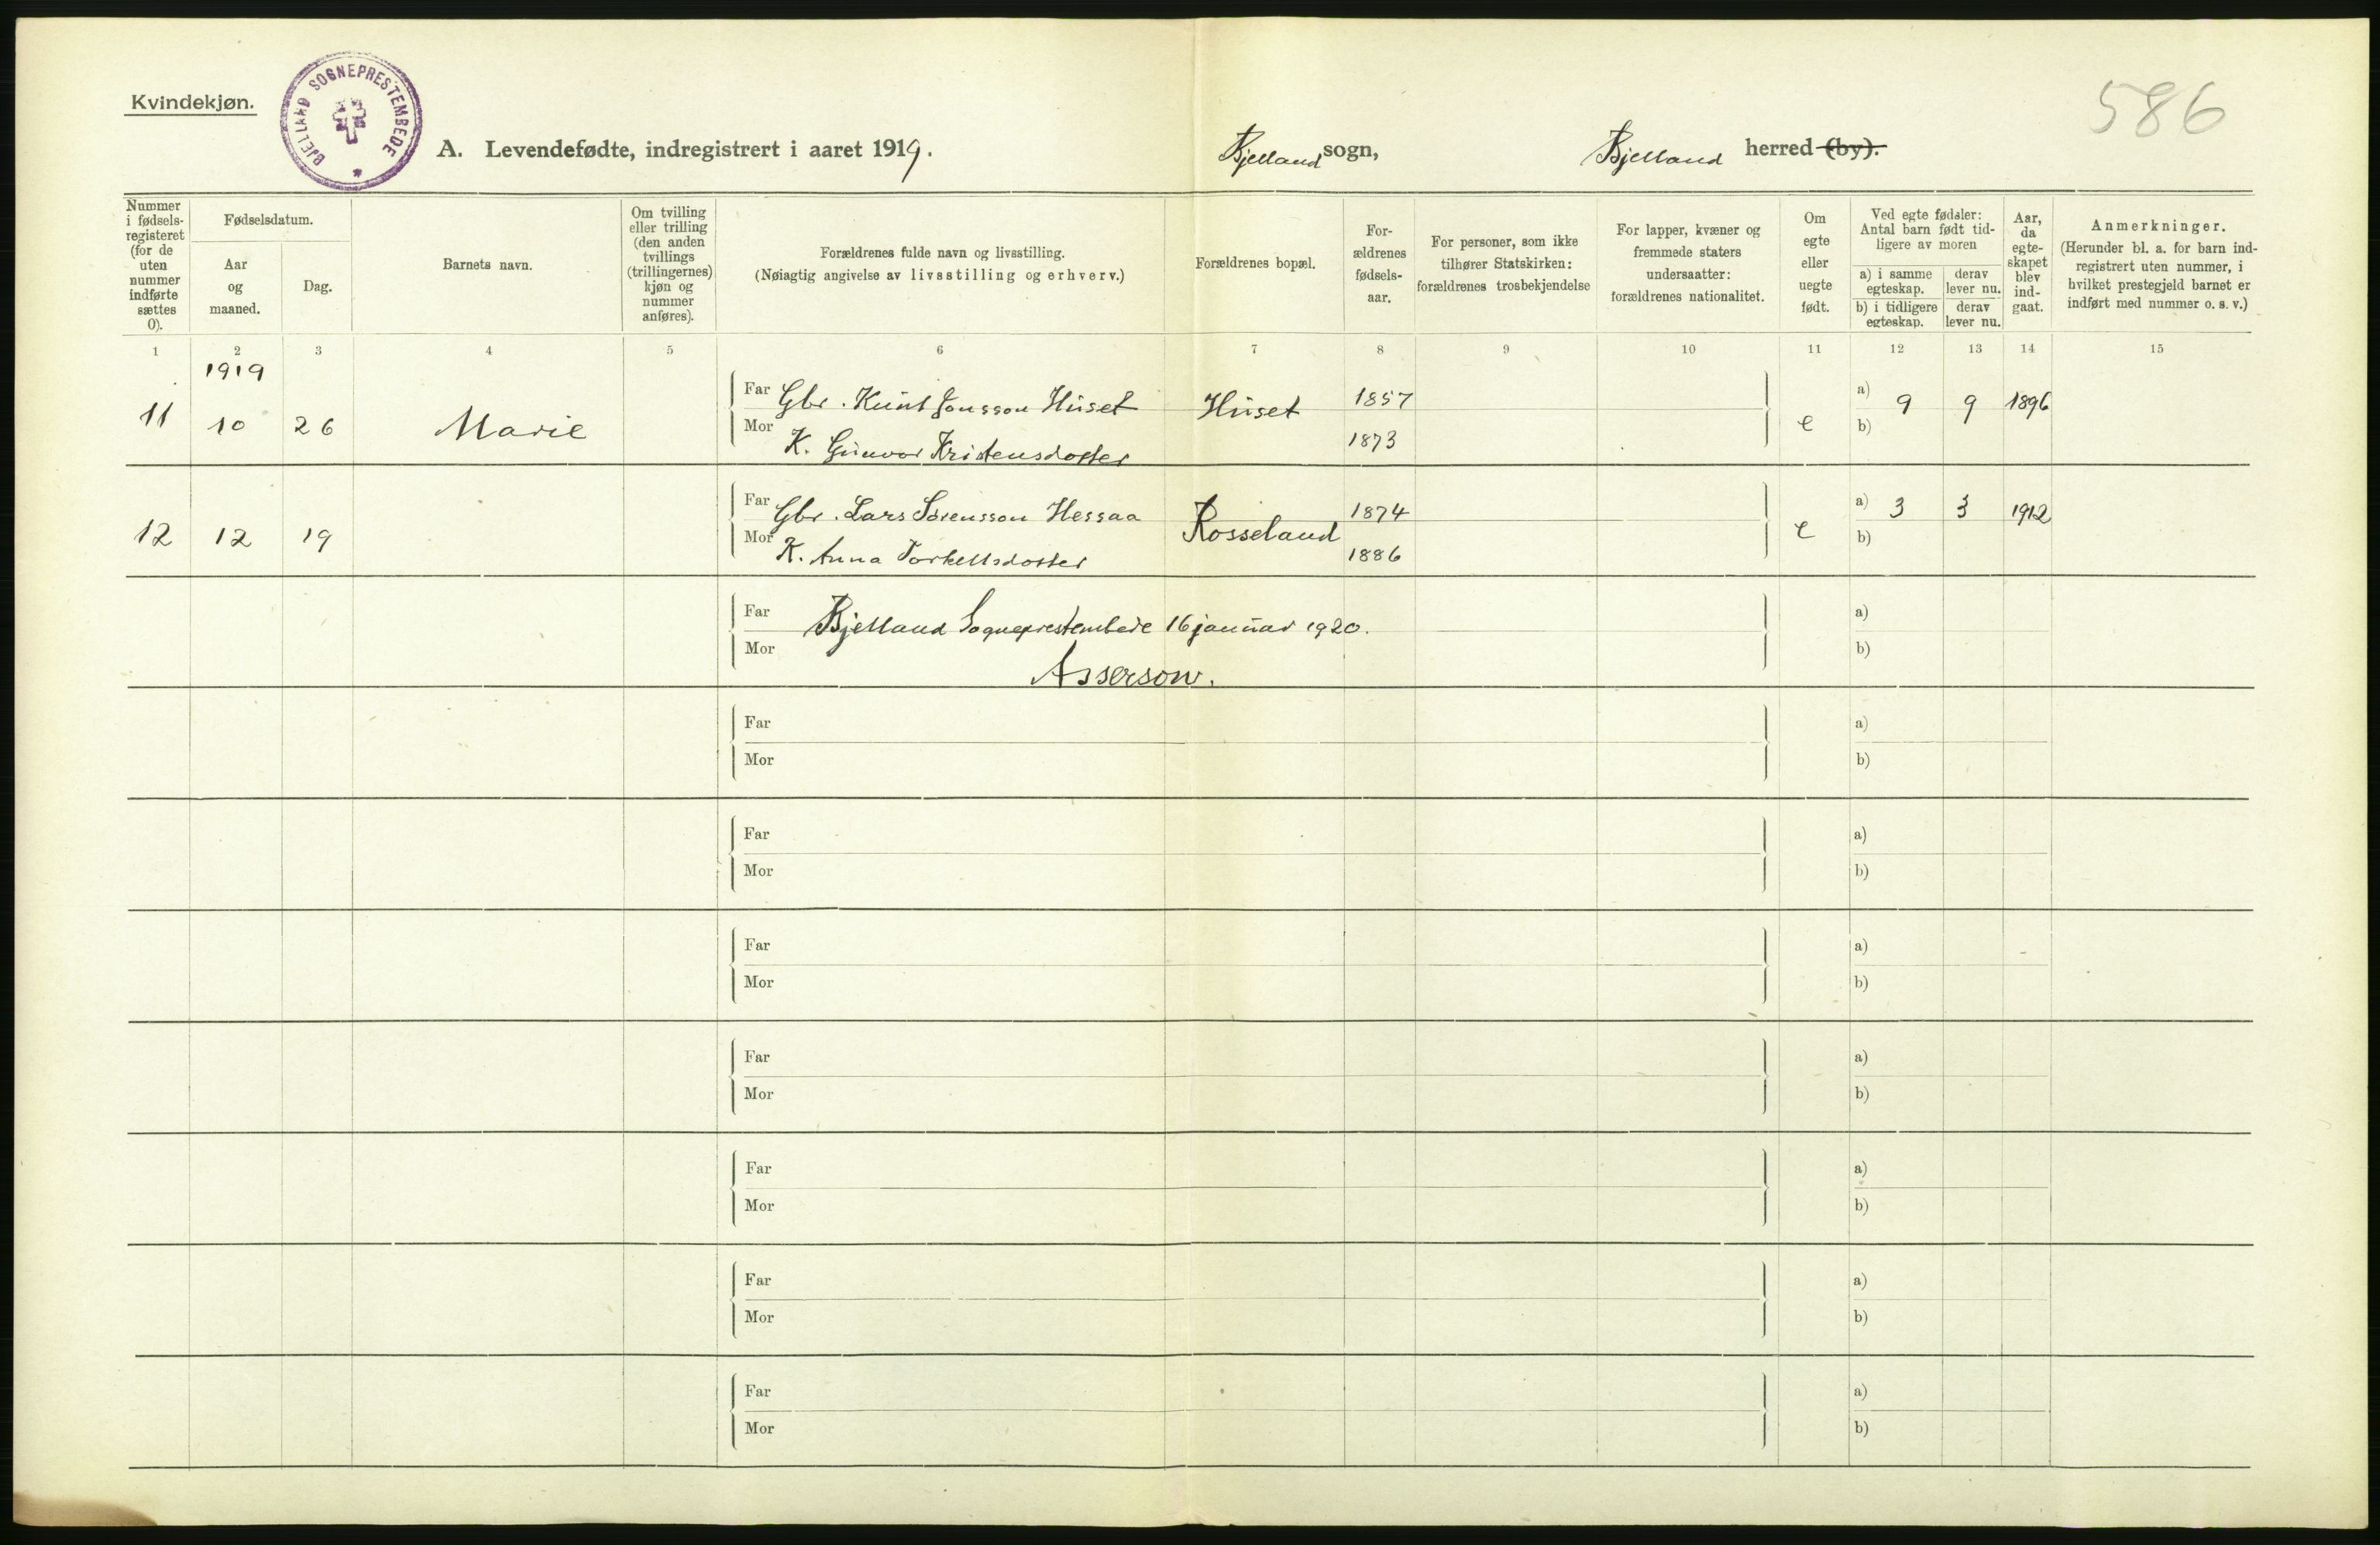 Kvindekjøn.
BJELLAND SOGNEPRESTEMBEDE
586
A. Levendefødte, indregistrert i aaret 1919. Bjelland sogn, Bjelland herred (by).
Nummer i fødsels-registeret (for de uten nummer indførte sættes 0).
Fødselsdatum.
Aar og maaned.
Dag.
Barnets navn.
Om tvilling eller trilling (den anden tvillings (trillingernes) kjøn og nummer anføres).
Forældrenes fulde navn og livsstilling.
(Nøiagtig angivelse av livsstilling og erhverv.)
Forældrenes bopæl.
For-ældrenes fødsels-aar.
For personer, som ikke tilhører Statskirken: forældrenes trosbekjendelse
For lapper, kvæner og fremmede staters undersaatter: forældrenes nationalitet.
Om egte eller uegte født.
Ved egte fødsler: Antal barn født tid-ligere av moren
a) i samme egteskap.
derav lever nu.
b) i tidligere egteskap.
derav lever nu.
Aar, da egte-skapet blev ind-gaat.
Anmerkninger.
(Herunder bl. a. for barn ind-registrert uten nummer, i hvilket prestegjeld barnet er indført med nummer o. s. v.)
1 2 3 4 5 6 7 8 9 10 11 12 13 14 15
1919
11 10 26 Marie Far Gbr. Knut Jonsson Huset Huset 1857 e a) 9 9 1896
Mor K. Gunvor Kristensdotter 1873 b)
12 12 19 Far Gbr. Lars Sørensson Hessaa Rosseland 1874 e a) 3 3 1912
Mor K. Anna Torkellsdotter 1886 b)
Far Bjelland Sogneprestembede 16 januar 1920. a)
Mor Asserson. b)
Far a)
Mor b)
Far a)
Mor b)
Far a)
Mor b)
Far a)
Mor b)
Far a)
Mor b)
Far a)
Mor b)
Far a)
Mor b)